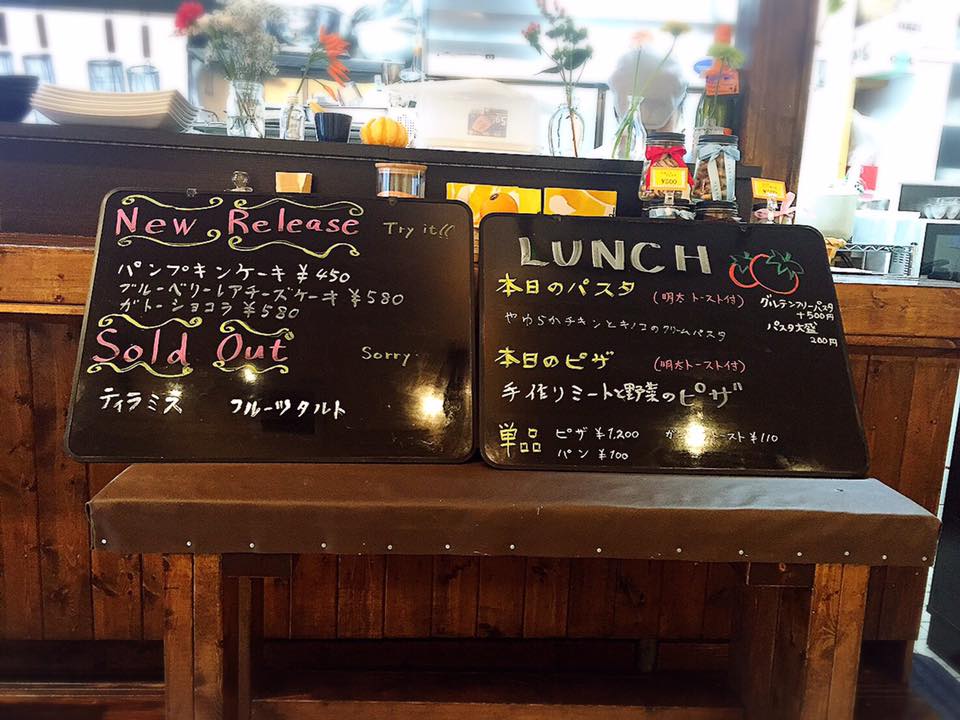 New Release Try it((
パンプキンケーキ ¥450
ブルーベリーレアチーズケーキ ¥580
ガトーショコラ ¥580
Sold Out Sorry...
ティラミス フルーツタルト
LUNCH
本日のパスタ (明太トースト付)
グルテンフリーパスタ
+500円
パスタ大盛
200円
やわらかチキンとキノコのクリームパスタ
本日のピザ (明太トースト付)
手作りミートと野菜のピザ
単品 ピザ ¥1,200 トースト ¥110
パン ¥100
¥500